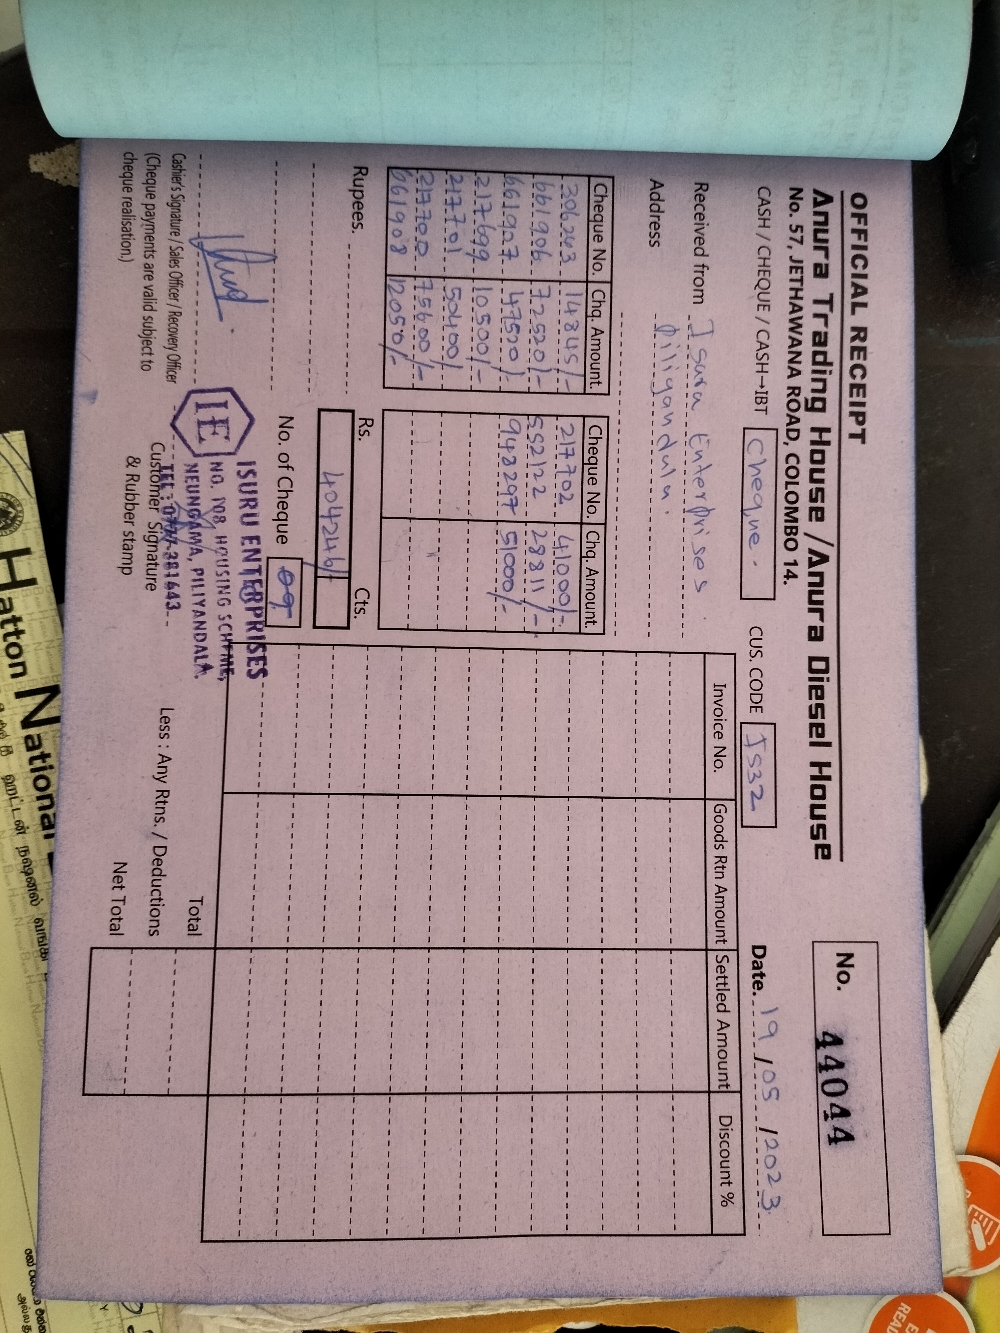 OFFICIAL RECEIPT
Anura Trading House / Anura Diesel House
No. 57, JETHAWANA ROAD, COLOMBO 14.
No. 44044
CASH / CHEQUE / CASH→IBT Cheque. CUS. CODE IS32 Date. 19/05/2023
Received from Isuru Enterprises
Address Piliyandala.
Cheque No. Chq. Amount Cheque No. Chq. Amount.
306243 14845/- 217702 41000/-
661906 72520/- 552122 28811/-
661907 47520/- 948297 51000/-
217699 10500/-
217701 50400/
217700 75600/-
661908 12050/-
Invoice No. Goods Rtn Amount Settled Amount Discount %
Rupees. Rs. Cts.
404246/-
No. of Cheque 09
Cashier's Signature / Sales Officer / Recovery Officer
(Cheque payments are valid subject to
cheque realisation.)
IE
ISURU ENTERPRISES
NO. 108, HOUSING SCHEME,
NEUNGAMA, PILIYANDALA.
TEL : 381643
Customer Signature
& Rubber stamp
Total
Less : Any Rtns. / Deductions
Net Total
Hatton National